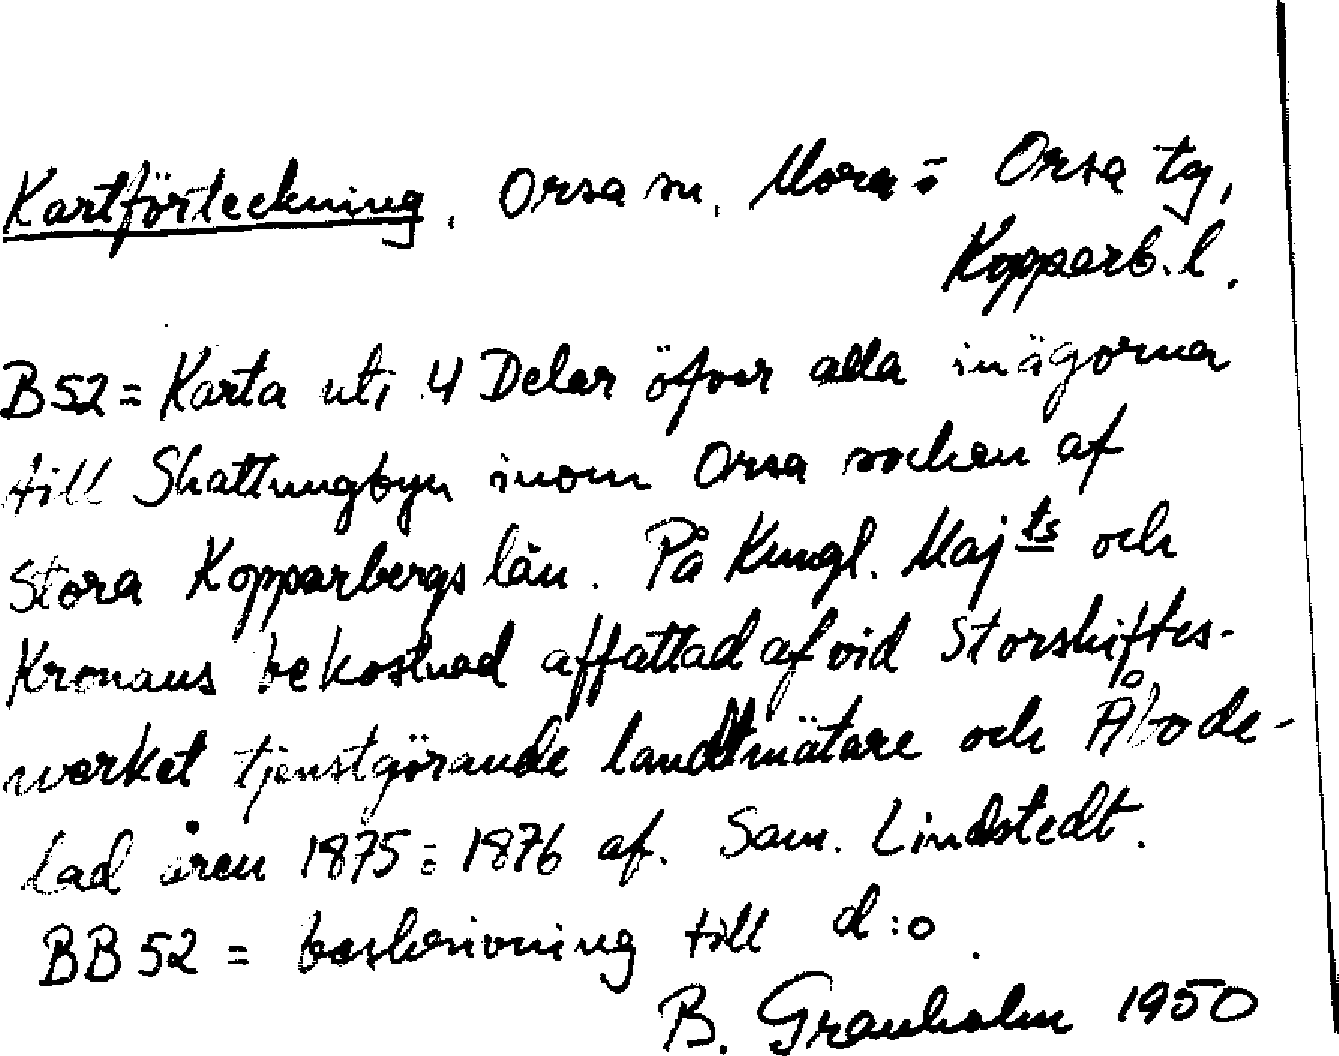 Kartförteckning. Orsa sn, Mora ÷ Orsa tg,
Kopparb. l.
B 52 = Karta uti 4 Delar öfver alla inägorna
till Skattungbyn inom Orsa socken af
Stora Kopparbergs län. På Kungl. Maj:ts och
Kronans bekostnad affattad af vid Storskiftes-
verket tjenstgörande landtmätare och Åbode-
lad åren 1875 ÷ 1876 af. Sam. Lindstedt.
BB 52 = beskrivning till d:o.
B. Granholm 1950